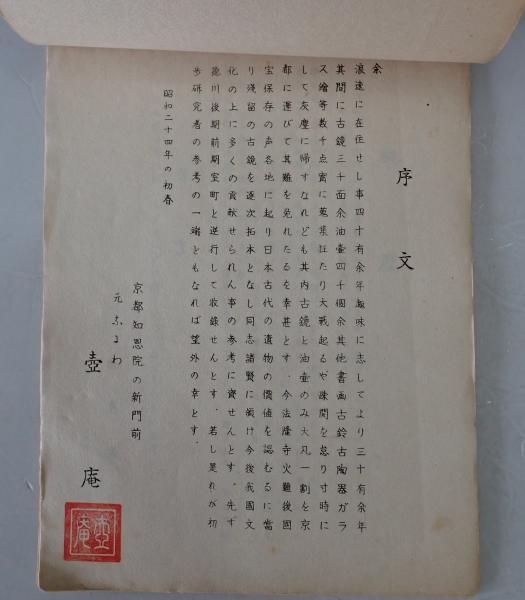 序文
余
浪速に在住せし事四十有余年趣味に志してより三十有余年
其間に古鏡三十面余油壷四十個余其他書画古鈴古陶器ガラ
ス絵等数千点蜜に蒐集拄たり大戦起るや疎開を怠り寸時に
して灰塵に帰すなれども其内古鏡と油壷のみ大凡一割を京
都に運びて其難を免れたるを幸甚とす。今法隆寺火難後国
宝保存の声各地に起り日本古代の遺物の價値を認むるに當
り残留の古鏡を逐次拓本となし同志諸賢に頒け今後我國文
化の上に多くの貢献せられん事の参考に資せんとす。先ず
徳川後期前期室町と逆行して收録せんとす。若し是れが初
歩研究者の参考の一端ともなれば望外の幸とす。
昭和二十四年の初春
京都知恩院の新門前
元なにわ
壷庵
壷庵